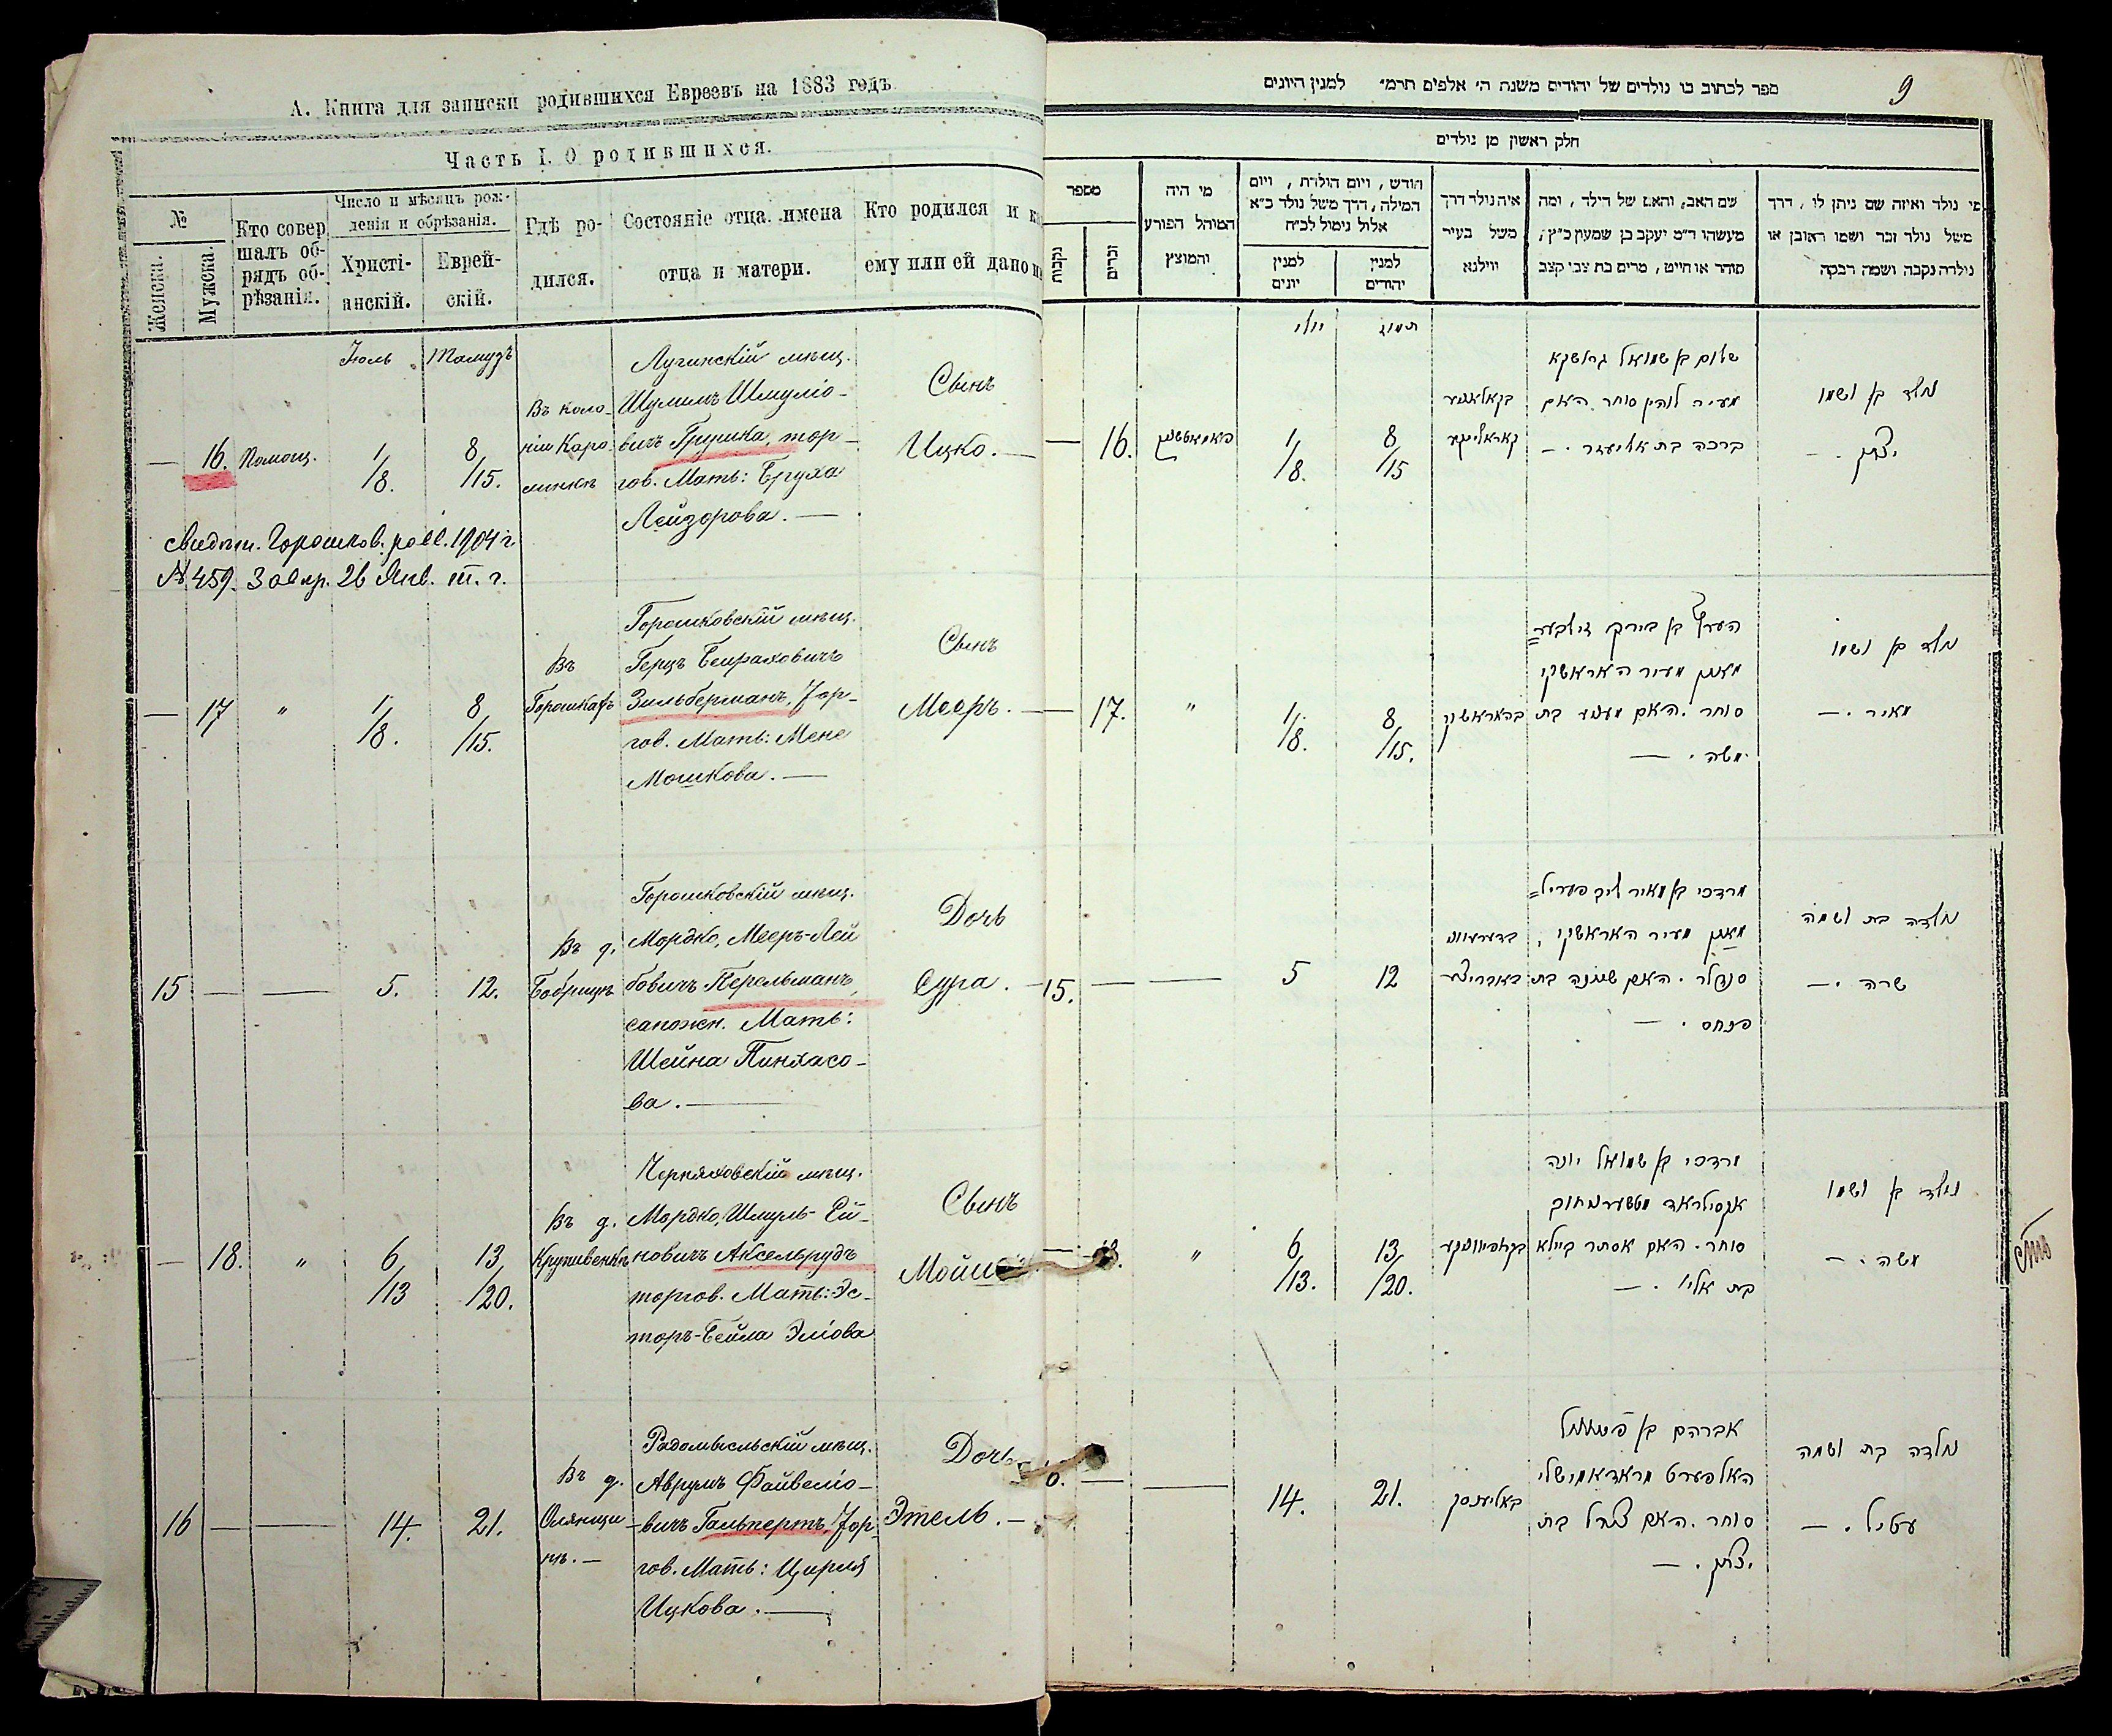 А. Книга для записки родившихся Евреевъ на 1883 годъ
Часть I. О родившихся.
№
Женска.
Мужска.
Кто совер
шалъ об-
рядъ об-
рѣзанія.
Число и мѣсяцъ рож-
денія и обрѣзанія.
Христі-
анскій.
Еврей-
скій.
Гдѣ ро-
дился.
Состояніе отца, имена
отца и матери.
Кто родился и
ему или ей дано
Іюль
Тамузъ
— 16. Помощ. 1/8. 8/15.
Въ коло-
ніи Каро-
линкѣ
Лугинскій мѣщ.
Шулимъ Шмуліо-
вичъ Грушка, тор-
гов. Мать: Бруха
Лейзорова. —
Сынъ
Ицко. —
свидѣт. Горошков. 1904 г.
№ 459. 26 Янв. т. г.
— 17 " 1/8. 8/15.
Въ
Горошкахъ
Горошковскій мѣщ.
Герцъ Беираховичъ
Зильберманъ, Тор-
гов. Мать: Мене
Мошкова. —
Сынъ
Мееръ. —
15 — — 5. 12.
Въ д.
Бобрицѣ
Горошковскій мѣщ.
Мордко, Мееръ-Лей
бовичъ Перельманъ,
сапожн. Мать:
Шейна Пинхасо-
ва. —
Дочь
Сура. —
— 18. " 6/13 13/20.
Въ д.
Крупивенкѣ
Черняховскій мѣщ.
Мордко, Шмуль-Ей-
новичъ Аксельрудъ
торгов. Мать: Эс-
торъ-Бейла Эліова
Сынъ
16 — — 14. 21.
Въ д.
Радомысльскій мѣщ.
Аврумъ Файвеліо-
-вичъ Гальпертъ, Тор-
гов. Мать: Цирля
Ицкова. —
Дочь
Этель. —
9
ספר לכתוב בו נולדים של יהודים משנה ה' אלפים תרמ״ למנין היונים
חלק ראשון מן נולדים
מספר
נקבות
זכרים
מי היה
המוהל הפורע
והמוצץ
חודש, ויום הולדת, ויום
המילה, דרך משל נולד כ״א
אלול נימול לכ״ח
למנין
יונים
למנין
יהודים
איה נולד דרך
משל בעיר
ווילנא
שם האב, והאם של הילד, ומה
מעשהו ד״מ יעקב בן שמעון כ״ץ,
סוחר או חייט, מרים בת צבי קצב
מי נולד ואיזה שם ניתן לו, דרך
משל נולד זכר ושמו ראובן או
נולדה נקבה ושמה רבקה
יולי
תמוז
— 16. 1/8. 8/15
קאראלינקע
שלום בן שמואל גרושקא
מעיר לוהין סוחר האם
ברכה בת אליעזר. —
נולד בן ושמו
יצחק. —
— 17. " 1/8. 8/15.
בהאראשקי
הערץ בן בירך זילבער=
מאנן מעיר האראשקי
סוחר. האם מענע בת
משה. —
נולד בן ושמו
מאיר. —
15. — — 5 12
מרדכי בן מאיר ליב פעריל=
מאנן מעיר האראשקי,
סנדלר. האם שיינה בת
פנחס. —
נולדה בת ושמה
שרה. —
" 6/13. 13/20.
מרדכי בן שמואל יונה
אקסילראד מטשערנחוב
סוחר. האם אסתר ביילא
בת אליו. —
נולד בן ושמו
משה. —
— — 14. 21.
אברהם בן פייוויל
האלפערט מראדאמישלי
סוחר. האם צירל בת
יצחק. —
נולדה בת ושמה
עטיל. —